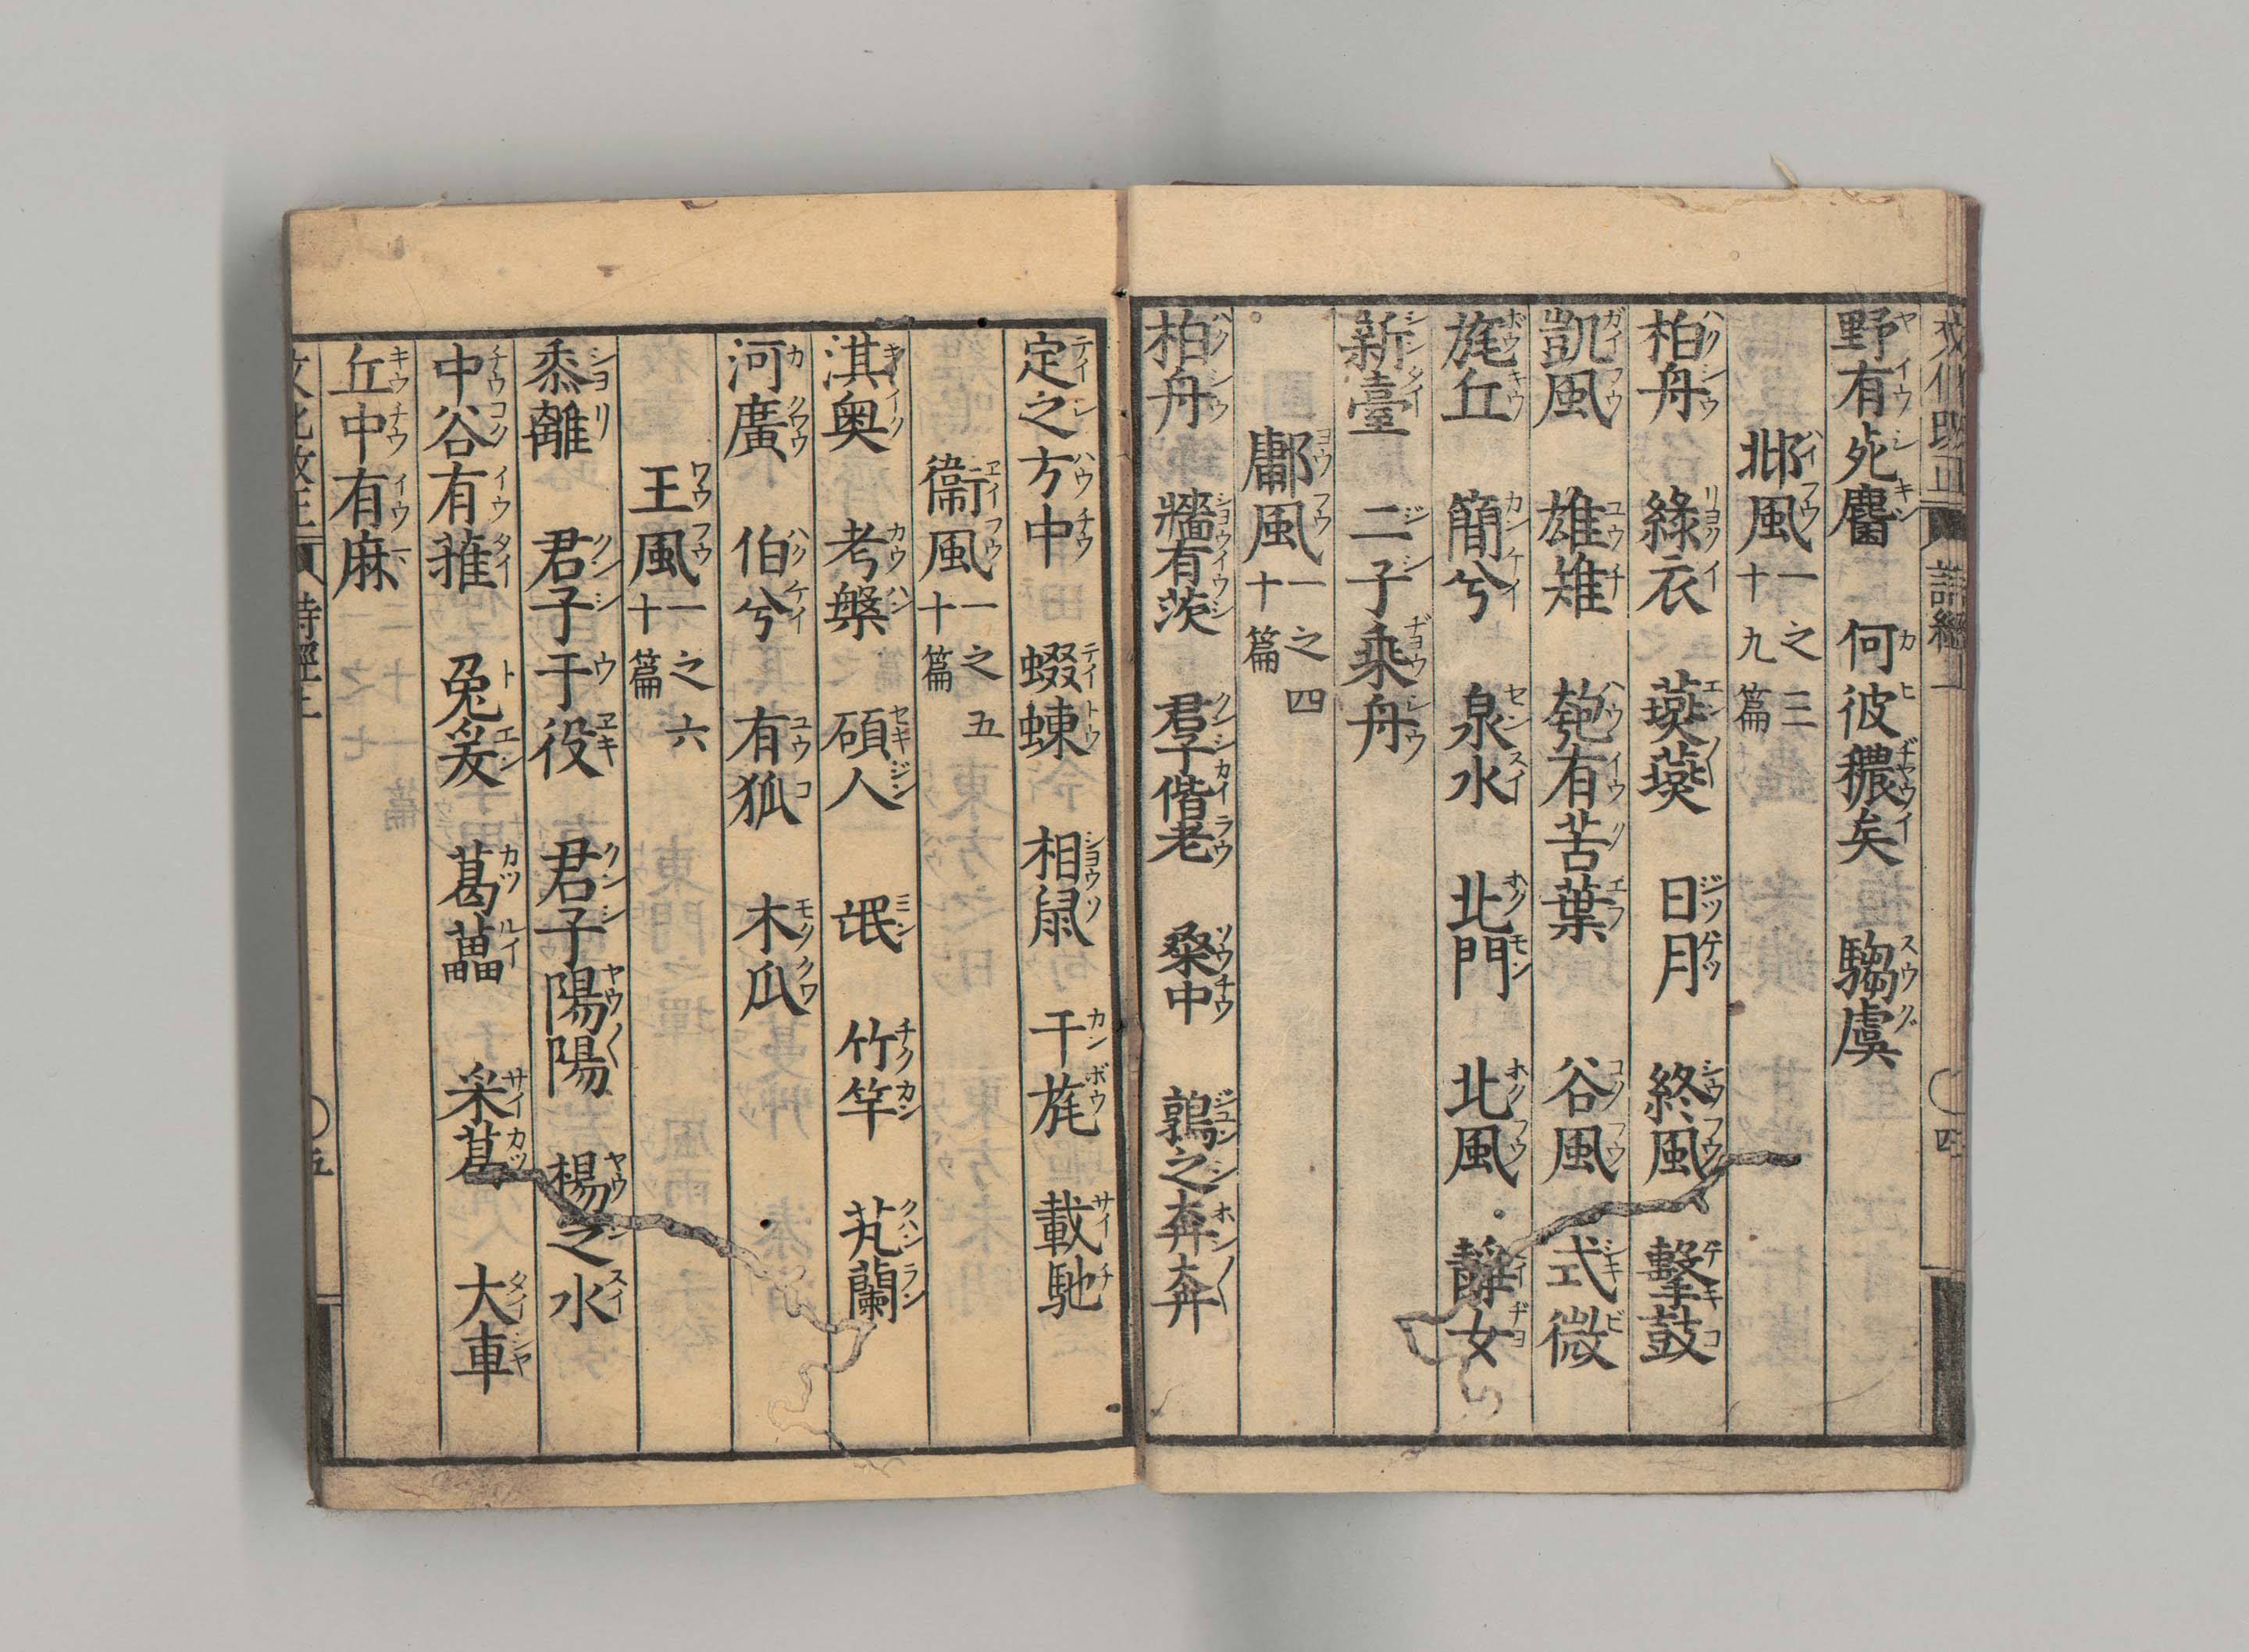 野有死麕　何彼穠矣　騶虞
邶風一之三十九篇
柏舟　綠衣　燕燕　日月　終風　擊鼓
凱風　雄雉　匏有苦葉　谷風　式微
旄丘　簡兮　泉水　北門　北風　靜女
新臺　二子乘舟
鄘風一之四十篇
柏舟　牆有茨　君子偕老　桑中　鶉之奔奔
定之方中　蝃蝀　相鼠　干旄　載馳
衞風一之五十篇
淇奧　考槃　碩人　氓　竹竿　芄蘭
河廣　伯兮　有狐　木瓜
王風一之六十篇
黍離　君子于役　君子陽陽　楊之水
中谷有蓷　兔爰　葛藟　采葛　大車
丘中有麻